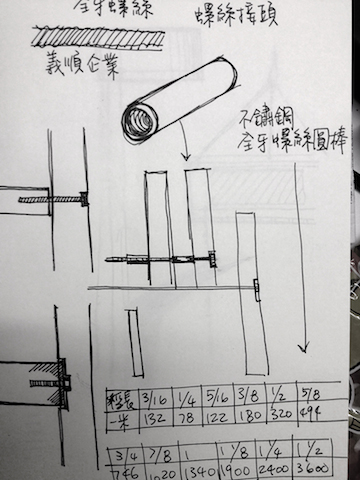 全牙螺絲
螺絲接頭
義順企業
不鏽鋼
全牙螺絲圓棒
3/16 1/4 5/16 3/8 1/2 5/8
一米 132 78 122 180 320 494
3/4 7/8 1 1 1/8 1 1/4 1 1/2
746 1020 1340 1900 2400 3600